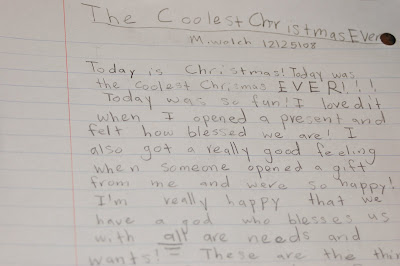 The Coolest Christmas Ever
M. Welch 12/25/08
Today is Christmas! Today was
the coolest Chrismas EVER!!!
Today was so fun! I loved it
when I opened a present and
felt how blessed we are! I
also got a really good feeling
when someone opened a gift
from me and were so happy!
I'm really happy that we
have a god who blesses us
with all are needs and
wants! These are the thin